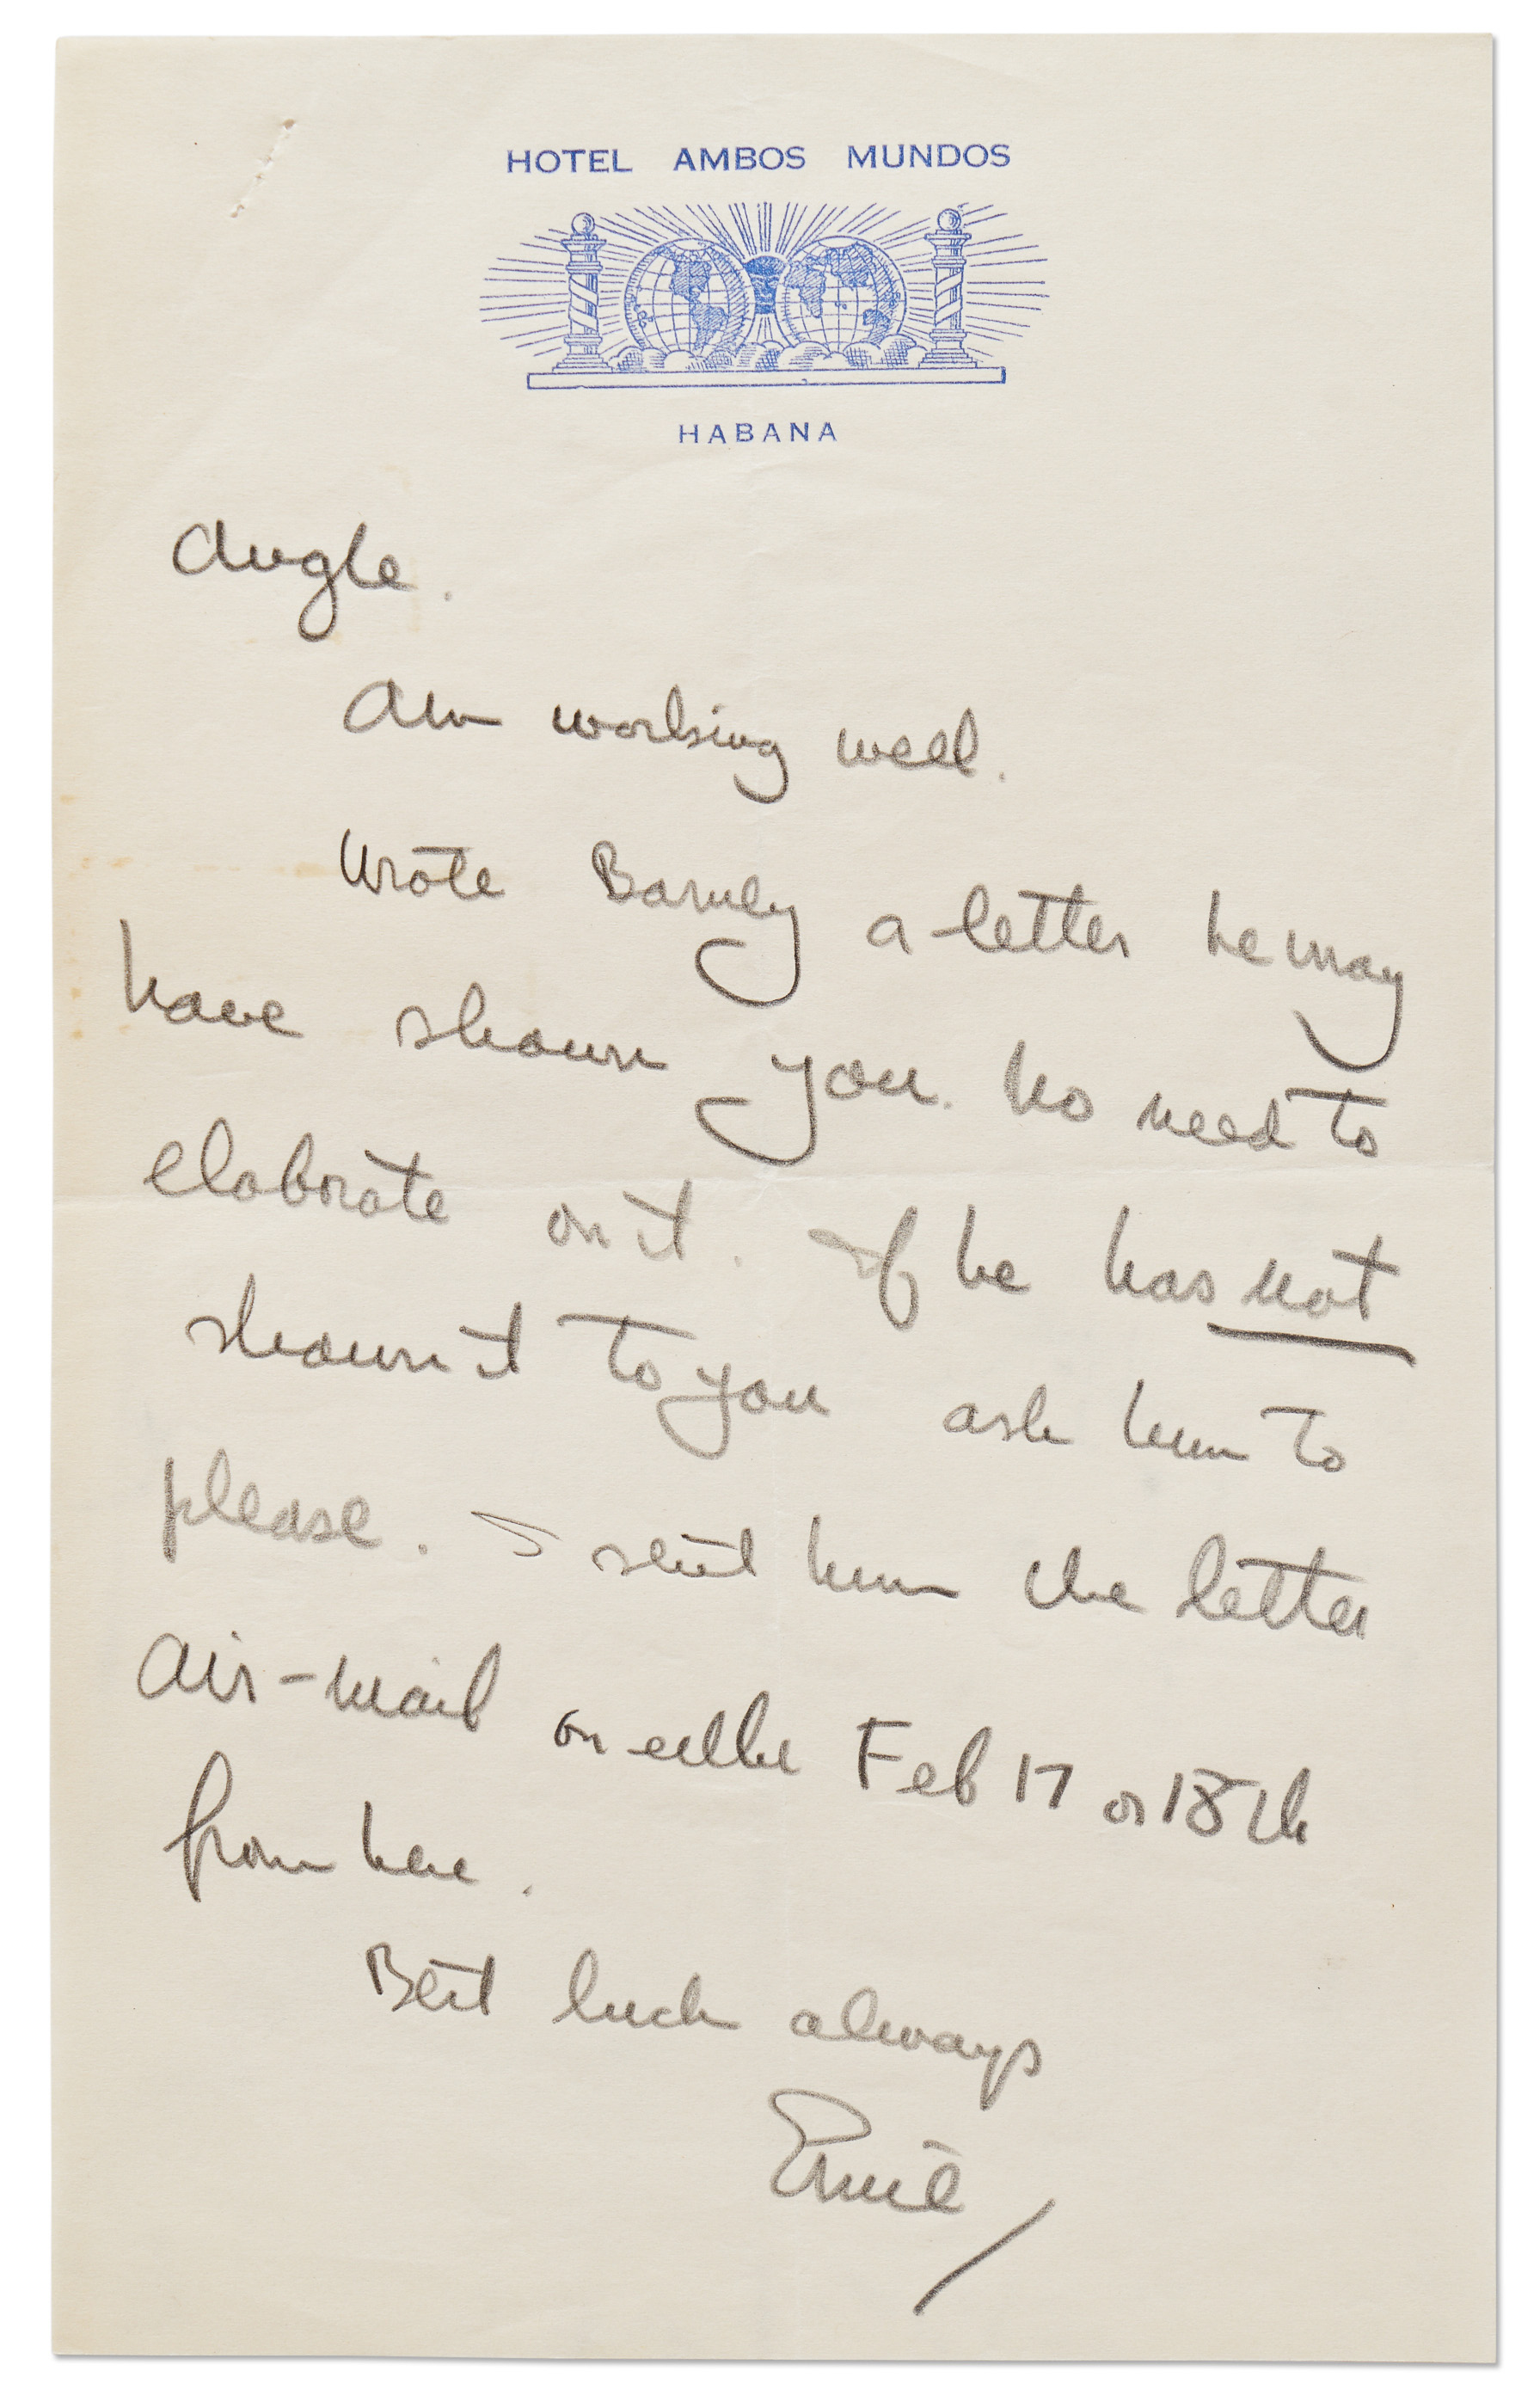 HOTEL AMBOS MUNDOS
HABANA
Angle.
Am working well.
Wrote Barney a letter he may
have shown you. No need to
elaborate on it. If he has not
shown it to you ask him to
please. I sent him the letter
air-mail on either Feb 17 or 18th
from here.
Best luck always